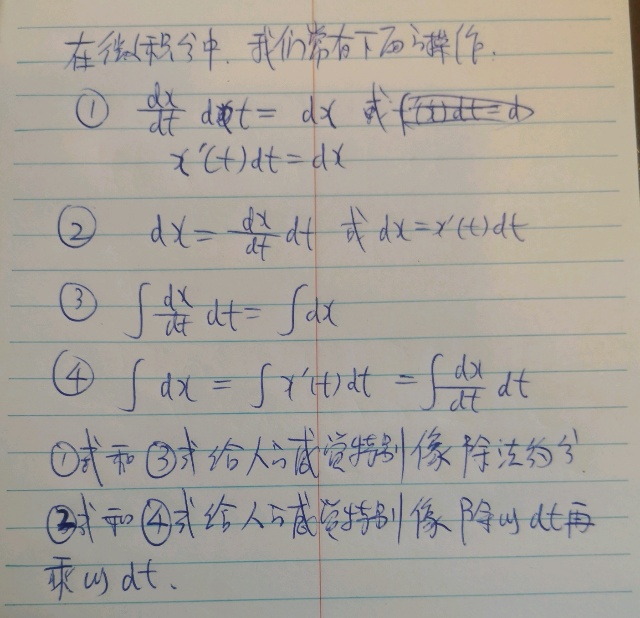 在微积分中.我们常有下面的操作.
① dx/dt dt = dx 或
x'(t)dt = dx
② dx = dx/dt dt 或 dx = x'(t)dt
③ ∫ dx/dt dt = ∫ dx
④ ∫ dx = ∫ x'(t)dt = ∫ dx/dt dt
①式和③式给人的感觉特别像除法约分
②式和④式给人的感觉特别像除以dt再
乘以dt.